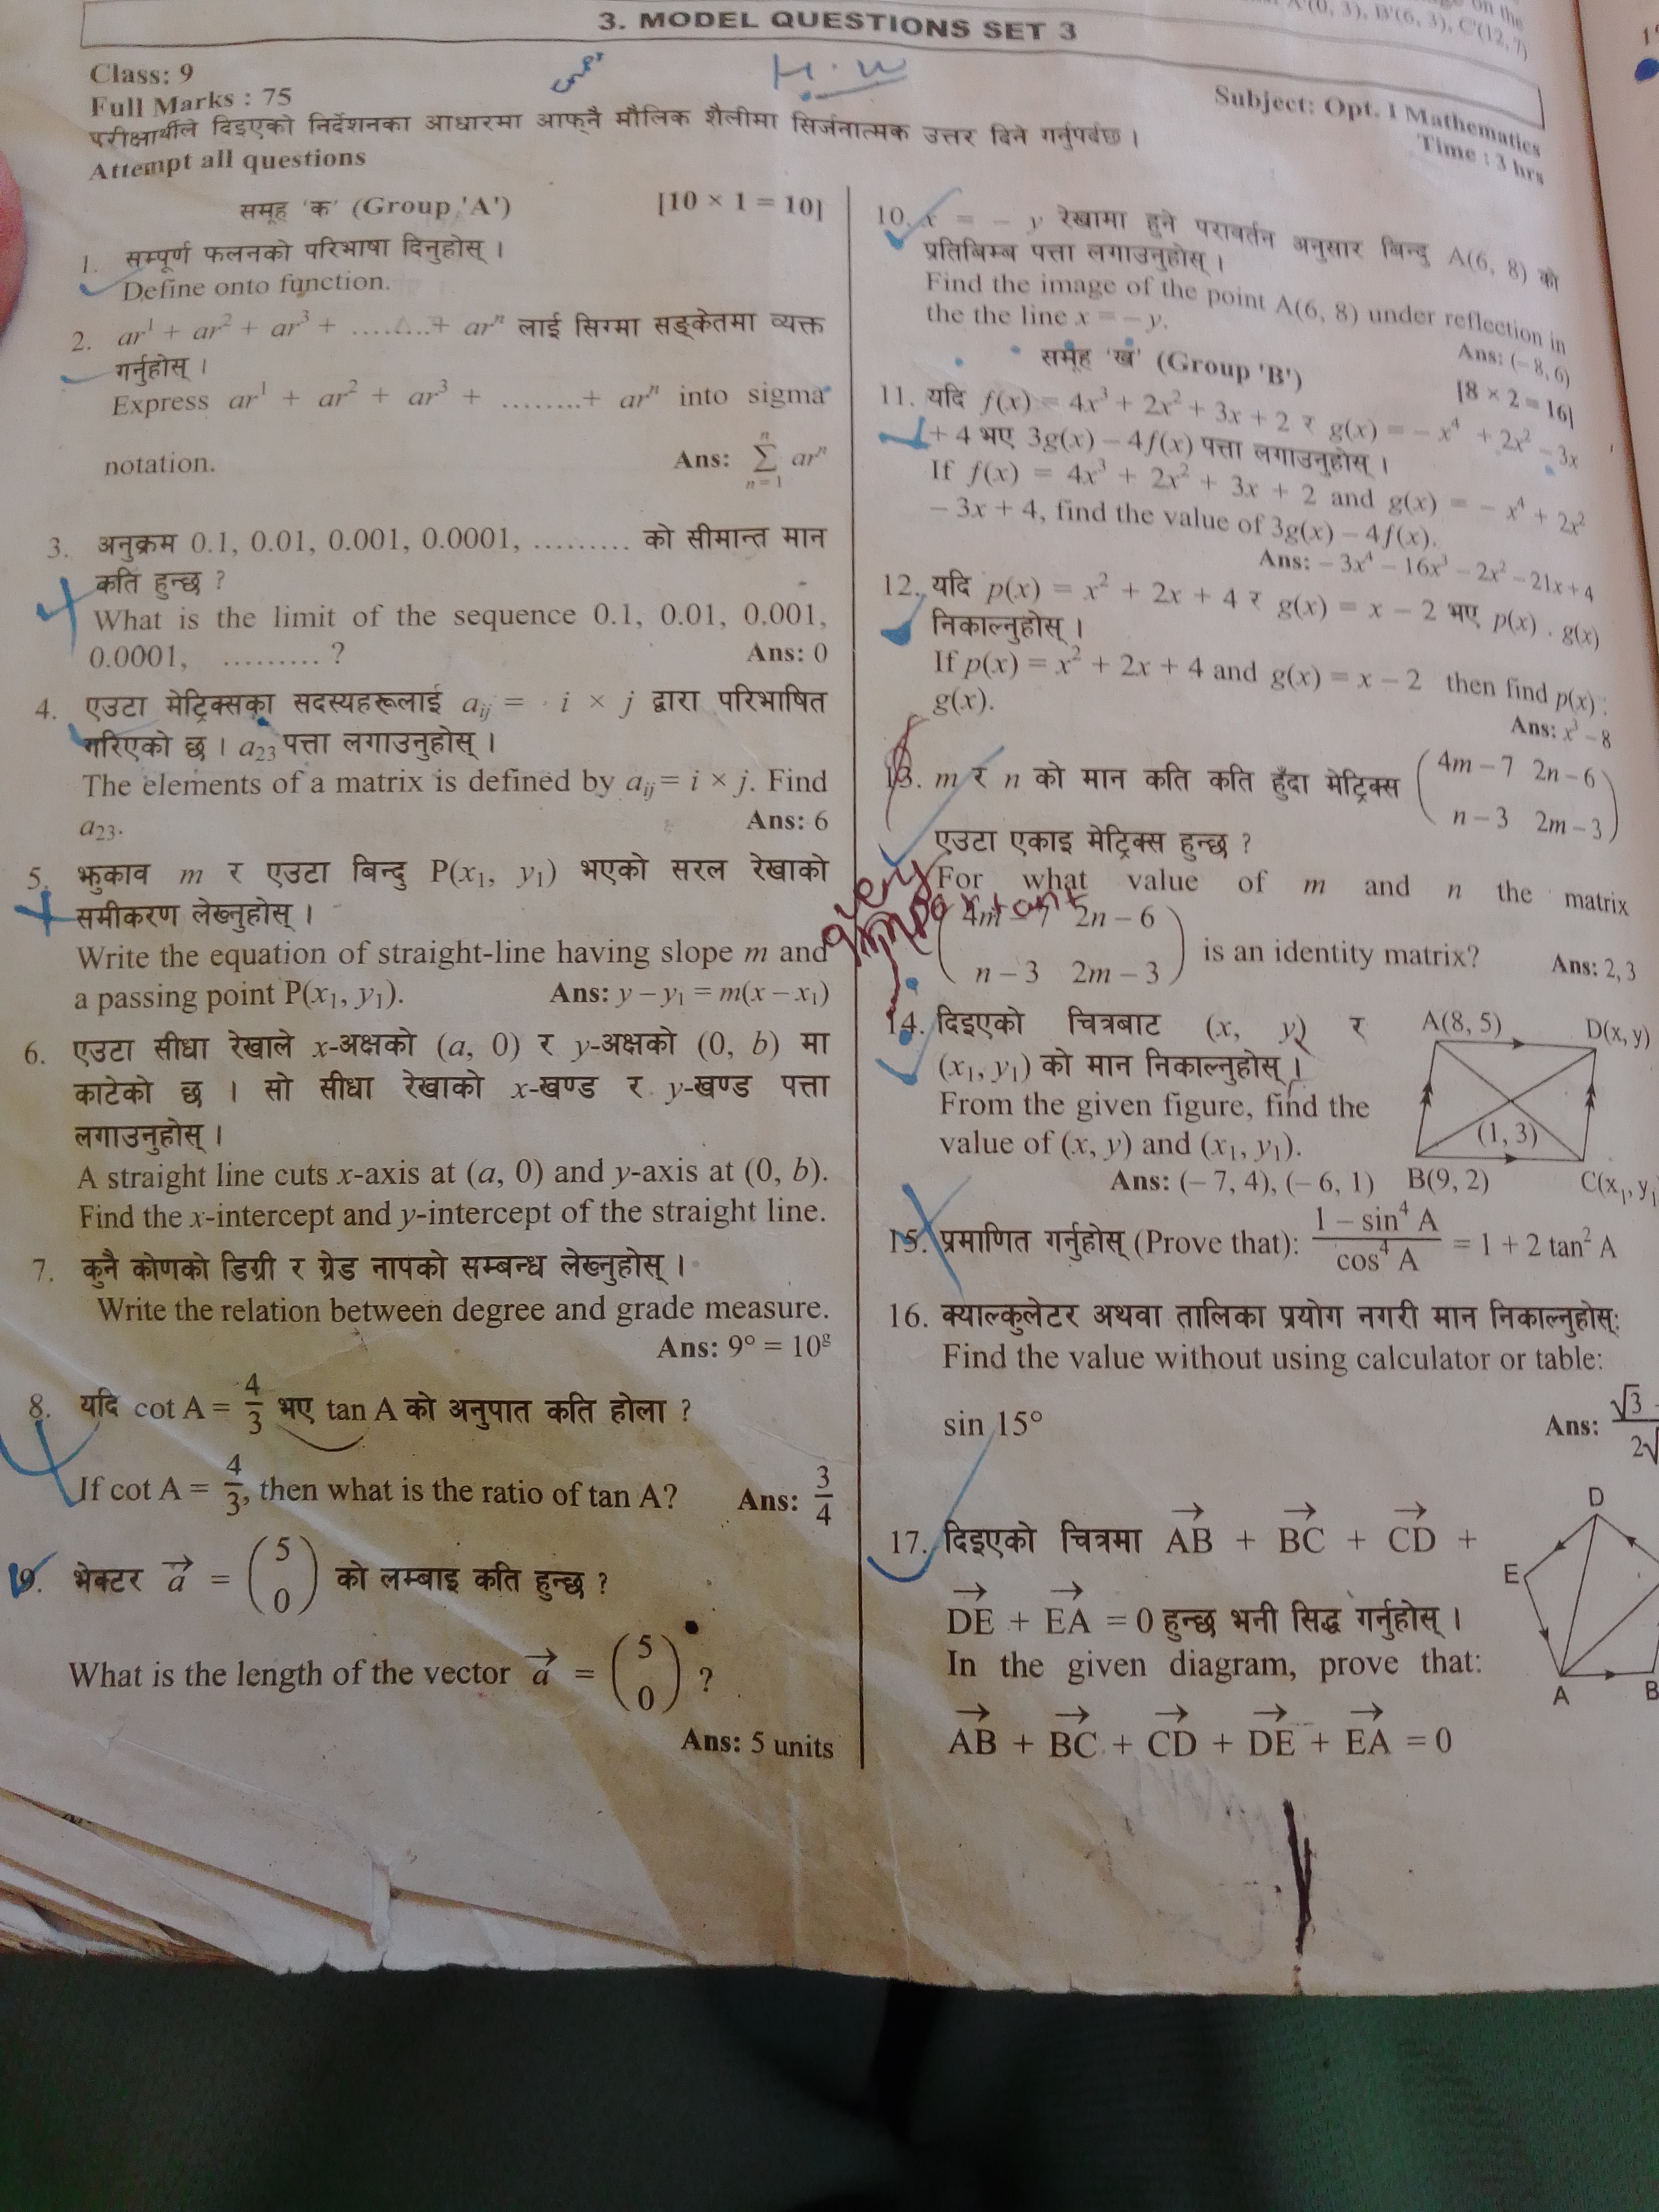 on the
A'(0, 3), B'(6, 3), C'(12, 7)
3. MODEL QUESTIONS SET 3
H.W
Class: 9
Full Marks : 75
Subject: Opt. I Mathematics
Time : 3 hrs
परीक्षार्थीले दिइएको निर्देशनका आधारमा आफ्नै मौलिक शैलीमा सिर्जनात्मक उत्तर दिने गर्नुपर्दछ ।
Attempt all questions
समूह 'क' (Group 'A') [10 × 1 = 10]
1. सम्पूर्ण फलनको परिभाषा दिनुहोस् ।
Define onto function.
2. ar¹ + ar² + ar³ + ........+ arⁿ लाई सिग्मा सङ्केतमा व्यक्त
गर्नुहोस् ।
Express ar¹ + ar² + ar³ + ........+ arⁿ into sigma
notation. Ans: ∑ₙ₌₁ⁿ arⁿ
3. अनुक्रम 0.1, 0.01, 0.001, 0.0001, ......... को सीमान्त मान
कति हुन्छ ?
What is the limit of the sequence 0.1, 0.01, 0.001,
0.0001, ......... ? Ans: 0
4. एउटा मेट्रिक्सका सदस्यहरूलाई aᵢⱼ = i × j द्वारा परिभाषित
गरिएको छ । a₂₃ पत्ता लगाउनुहोस् ।
The elements of a matrix is defined by aᵢⱼ = i × j. Find
a₂₃. Ans: 6
5. झुकाव m र एउटा बिन्दु P(x₁, y₁) भएको सरल रेखाको
समीकरण लेख्नुहोस् ।
Write the equation of straight-line having slope m and
a passing point P(x₁, y₁). Ans: y – y₁ = m(x – x₁)
6. एउटा सीधा रेखाले x-अक्षको (a, 0) र y-अक्षको (0, b) मा
काटेको छ । सो सीधा रेखाको x-खण्ड र y-खण्ड पत्ता
लगाउनुहोस् ।
A straight line cuts x-axis at (a, 0) and y-axis at (0, b).
Find the x-intercept and y-intercept of the straight line.
7. कुनै कोणको डिग्री र ग्रेड नापको सम्बन्ध लेख्नुहोस् ।
Write the relation between degree and grade measure.
Ans: 9° = 10ᵍ
8. यदि cot A = 4/3 भए tan A को अनुपात कति होला ?
If cot A = 4/3, then what is the ratio of tan A? Ans: 3/4
9. भेक्टर a⃗ = (5 0) को लम्बाइ कति हुन्छ ?
What is the length of the vector a⃗ = (5 0) ?
Ans: 5 units
10. x = – y रेखामा हुने परावर्तन अनुसार बिन्दु A(6, 8) को
प्रतिबिम्ब पत्ता लगाउनुहोस् ।
Find the image of the point A(6, 8) under reflection in
the the line x = – y. Ans: (– 8, 6)
समूह 'ख' (Group 'B') [8 × 2 = 16]
11. यदि f(x) = 4x³ + 2x² + 3x + 2 र g(x) = – x⁴ + 2x² – 3x
+ 4 भए 3g(x) – 4f(x) पत्ता लगाउनुहोस् ।
If f(x) = 4x³ + 2x² + 3x + 2 and g(x) = – x⁴ + 2x²
– 3x + 4, find the value of 3g(x) – 4f(x).
Ans: – 3x⁴ – 16x³ – 2x² – 21x + 4
12. यदि p(x) = x² + 2x + 4 र g(x) = x – 2 भए p(x) . g(x)
निकाल्नुहोस् ।
If p(x) = x² + 2x + 4 and g(x) = x – 2 then find p(x) .
g(x).
Ans: x³ – 8
13. m र n को मान कति कति हुँदा मेट्रिक्स (4m – 7 2n – 6
n – 3 2m – 3)
एउटा एकाइ मेट्रिक्स हुन्छ ?
For what value of m and n the matrix
very important
(4m – 7 2n – 6
n – 3 2m – 3) is an identity matrix? Ans: 2, 3
14. दिइएको चित्रबाट (x, y) र
(x₁, y₁) को मान निकाल्नुहोस् ।
From the given figure, find the
value of (x, y) and (x₁, y₁).
Ans: (– 7, 4), (– 6, 1)
A(8, 5) D(x, y)
(1, 3)
B(9, 2) C(x₁, y₁
15. प्रमाणित गर्नुहोस् (Prove that): (1 – sin⁴ A)/(cos⁴ A) = 1 + 2 tan² A
16. क्याल्कुलेटर अथवा तालिका प्रयोग नगरी मान निकाल्नुहोस्:
Find the value without using calculator or table:
sin 15° Ans: √3 – / 2√
17. दिइएको चित्रमा A⃗B⃗ + B⃗C⃗ + C⃗D⃗ +
D⃗E⃗ + E⃗A⃗ = 0 हुन्छ भनी सिद्ध गर्नुहोस् ।
In the given diagram, prove that:
A⃗B⃗ + B⃗C⃗ + C⃗D⃗ + D⃗E⃗ + E⃗A⃗ = 0
D
E
A B